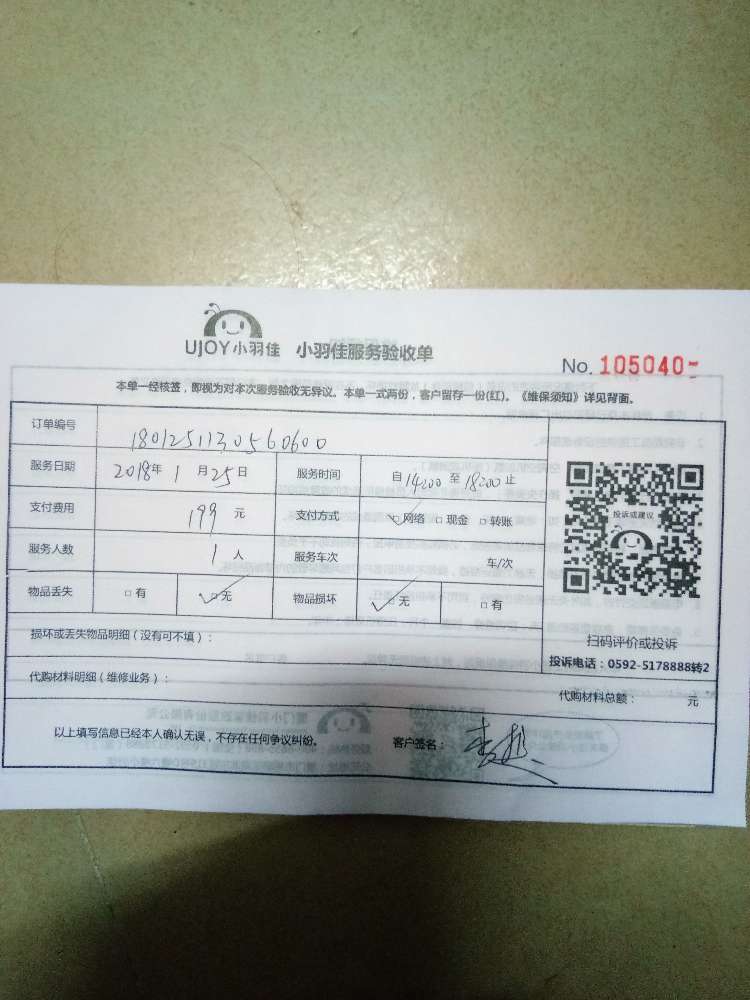 UJOY小羽佳 小羽佳服务验收单
No. 105040
本单一经核签，即视为对本次服务验收无异议。本单一式两份，客户留存一份(红)。《维保须知》详见背面。
订单编号 1801251130560600
服务日期 2018年1月25日 服务时间 自14:00至18:00止
支付费用 199元 支付方式 ☑网络 □现金 □转账
服务人数 1人 服务车次 车/次
物品丢失 □有 ☑无 物品损坏 ☑无 □有
投诉或建议
扫码评价或投诉
投诉电话：0592-5178888转2
损坏或丢失物品明细（没有可不填）：
代购材料明细（维修业务）： 代购材料总额： 元
以上填写信息已经本人确认无误，不存在任何争议纠纷。 客户签名：